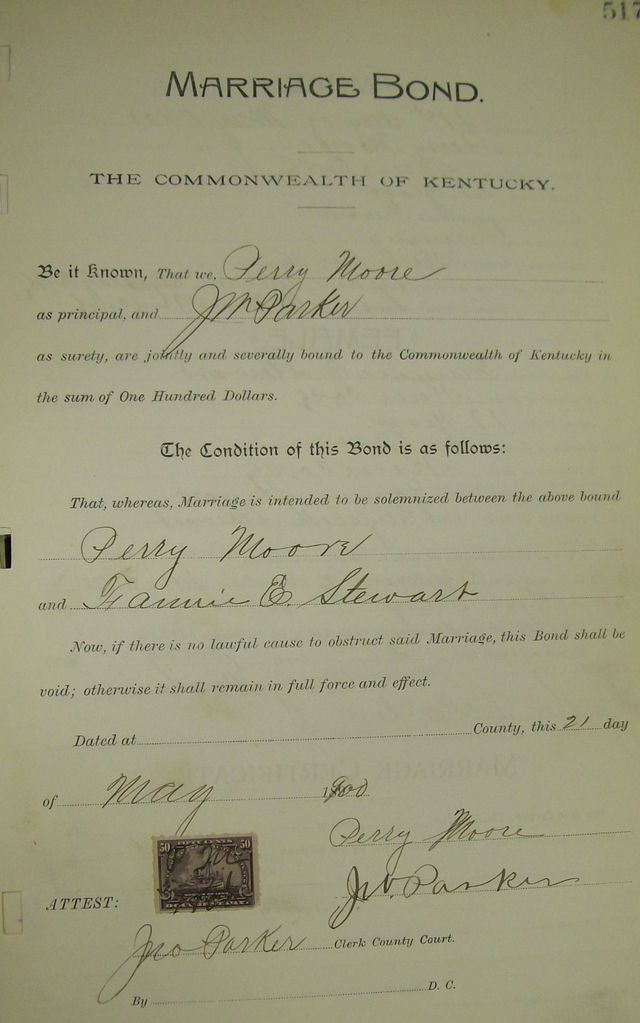 517
MARRIAGE BOND.
THE COMMONWEALTH OF KENTUCKY.
Be it Known, That we, Perry Moore
as principal, and J W Parker
as surety, are jointly and severally bound to the Commonwealth of Kentucky in
the sum of One Hundred Dollars.
The Condition of this Bond is as follows:
That, whereas, Marriage is intended to be solemnized between the above bound
Perry Moore
and Fannie E. Stewart
Now, if there is no lawful cause to obstruct said Marriage, this Bond shall be
void; otherwise it shall remain in full force and effect.
Dated at County, this 21 day
of May 1900
Perry Moore
50 50
J W. Parker
ATTEST:
Jno Parker Clerk County Court.
By D. C.